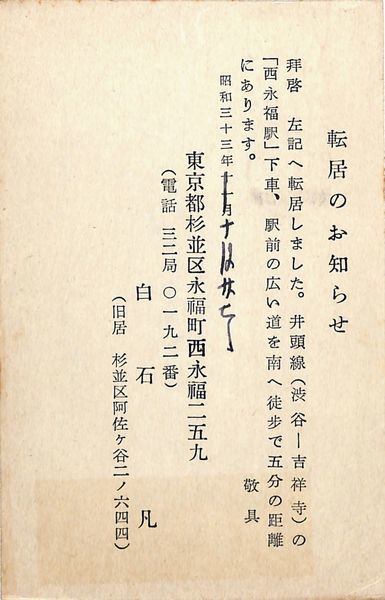 転居のお知らせ
拝啓　左記へ転居しました。井頭線(渋谷―吉祥寺)の
「西永福駅」下車、駅前の広い道を南へ徒歩で五分の距離
にあります。
敬具
昭和三十三年十
東京都杉並区永福町西永福二五九
(電話　三二局　〇一九二番)
白石　凡
(旧居　杉並区阿佐ヶ谷二ノ六四四)